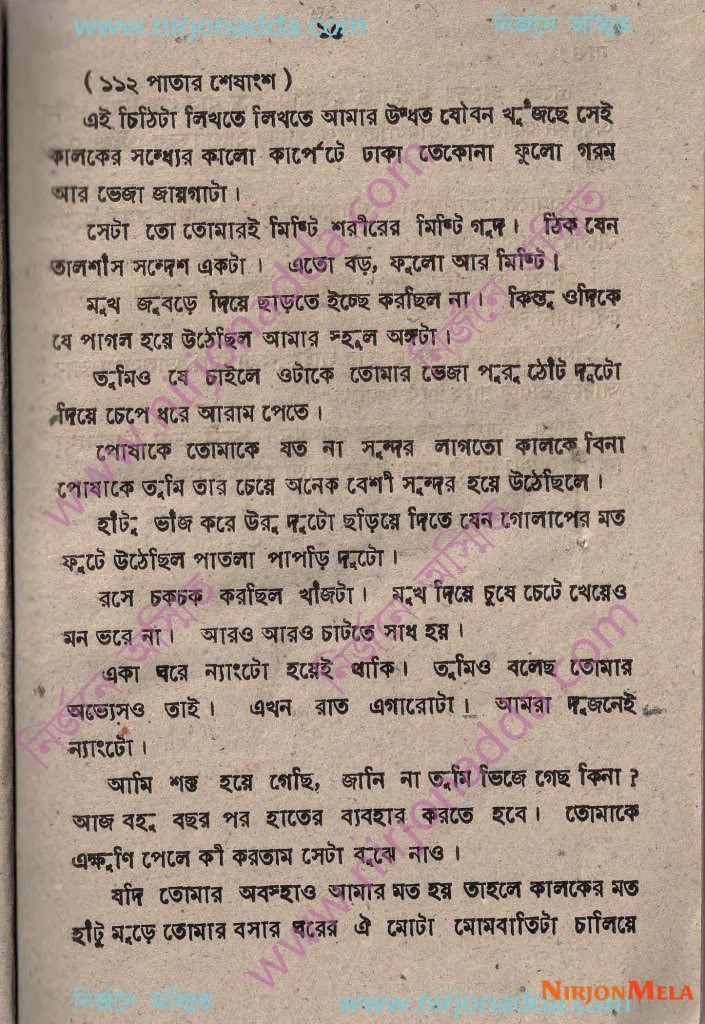 www.nirjonadda.com
নির্জনে অস্মিত
( ১১২ পাতার শেষাংশ )
এই চিঠিটা লিখতে লিখতে আমার উদ্ধত যৌবন খুঁজছে সেই
কালকের সন্ধ্যের কালো কার্পেটে ঢাকা তেকোনা ফুলো গরম
আর ভেজা জায়গাটা।
সেটা তো তোমারই মিষ্টি শরীরের মিষ্টি গন্ধ। ঠিক যেন
তালশাঁস সন্দেশ একটা। এতো বড়, ফুলো আর মিষ্টি।
মুখ জুবড়ে দিয়ে ছাড়তে ইচ্ছে করছিল না। কিন্তু ওদিকে
যে পাগল হয়ে উঠেছিল আমার স্হুল অঙ্গটা।
তুমিও যে চাইলে ওটাকে তোমার ভেজা পুরু ঠোঁট দুটো
দিয়ে চেপে ধরে আরাম পেতে।
পোষাকে তোমাকে যত না সুন্দর লাগতো কালকে বিনা
পোষাকে তুমি তার চেয়ে অনেক বেশী সুন্দর হয়ে উঠেছিলে।
হাঁটু ভাঁজ করে উরু দুটো ছড়িয়ে দিতে যেন গোলাপের মত
ফুটে উঠেছিল পাতলা পাপড়ি দুটো।
রসে চকচক করছিল খাঁজটা। মুখ দিয়ে চুষে চেটে খেয়েও
মন ভরে না। আরও আরও চাটতে সাধ হয়।
একা ঘরে ন্যাংটো হয়েই থাকি। তুমিও বলেছ তোমার
অভ্যেসও তাই। এখন রাত এগারোটা। আমরা দুজনেই
ন্যাংটো।
আমি শক্ত হয়ে গেছি, জানি না তুমি ভিজে গেছ কিনা ?
আজ বহু বছর পর হাতের ব্যবহার করতে হবে। তোমাকে
এক্ষুণি পেলে কী করতাম সেটা বুঝে নাও।
যদি তোমার অবস্হাও আমার মত হয় তাহলে কালকের মত
হাঁটু মুড়ে তোমার বসার ঘরের ঐ মোটা মোমবাতিটা চালিয়ে
নির্জনে অস্মিত
www.nirjonadda.com
NIRJONMELA